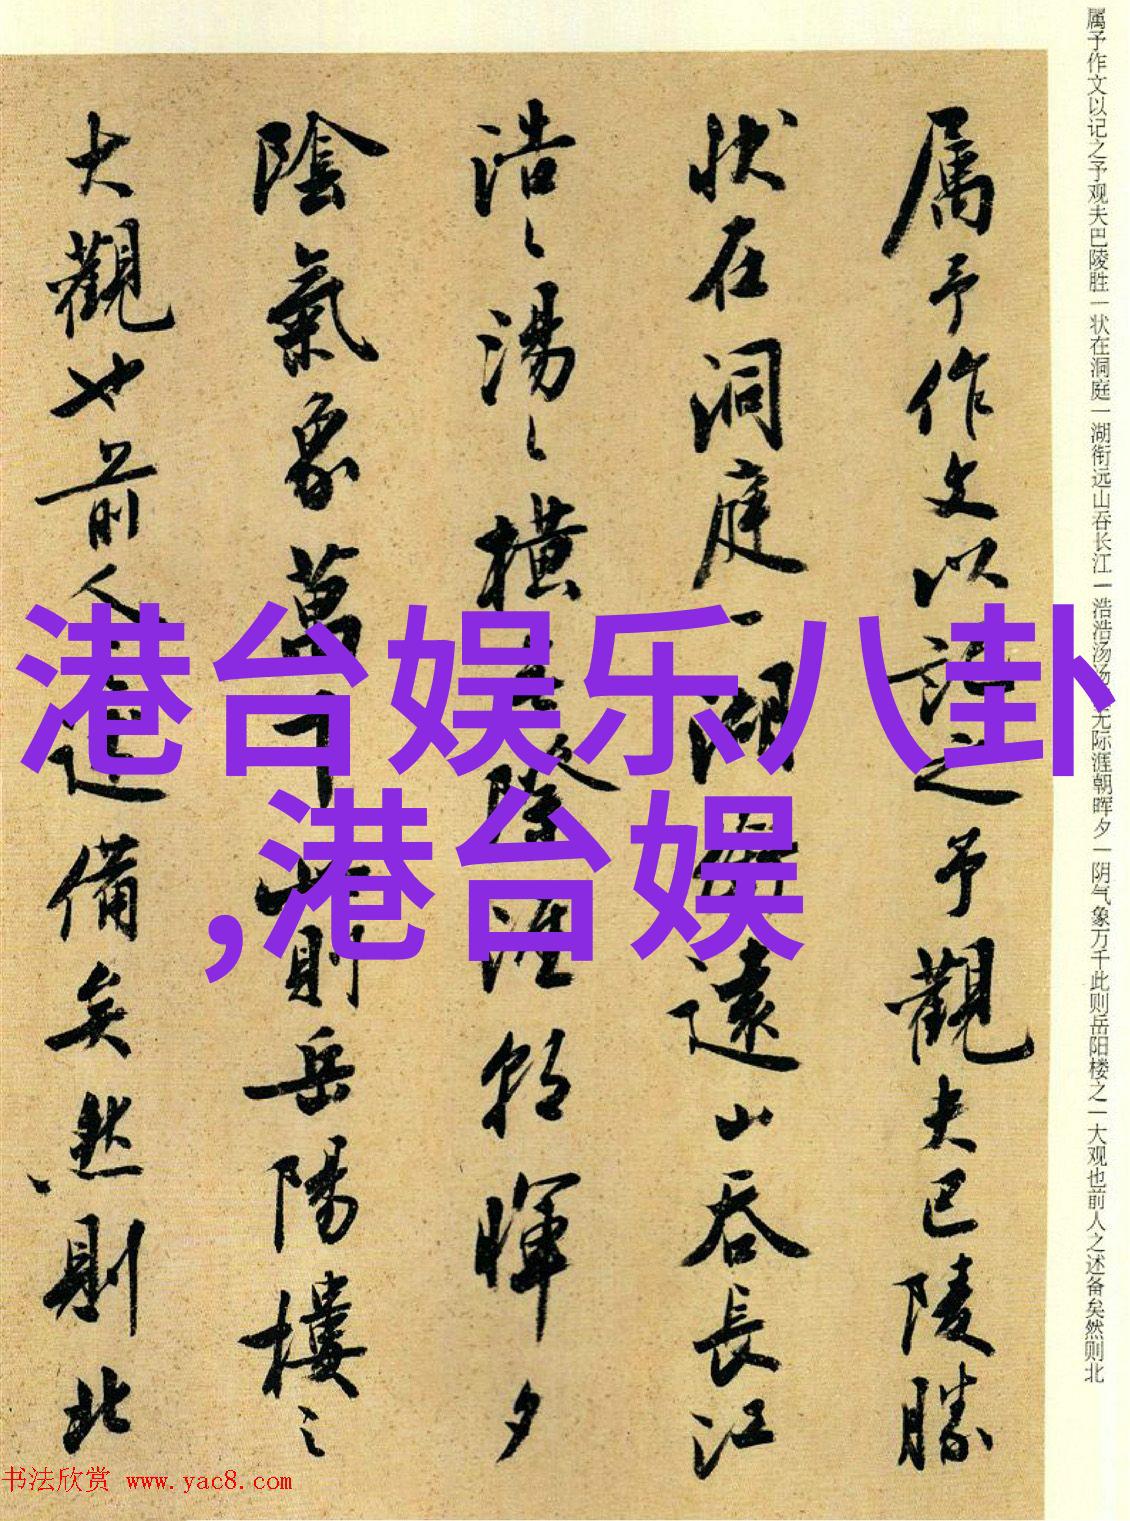 属予作文以記之予觀夫巴陵勝
状在洞庭一湖銜遠山吞長江
浩〻湯〻橫無際涯朝暉夕
陰氣象萬千此則岳陽樓之
大觀也前人之述備矣然則北
属予作文以记之予观夫巴陵胜一状在洞庭一湖衔远山吞长江一浩浩汤汤 无际涯朝晖夕一阴气象万千此则岳阳楼之一大观也前人之述备矣然则北
港台娱乐八卦
,港台娱
书法欣赏 www.yac8.com